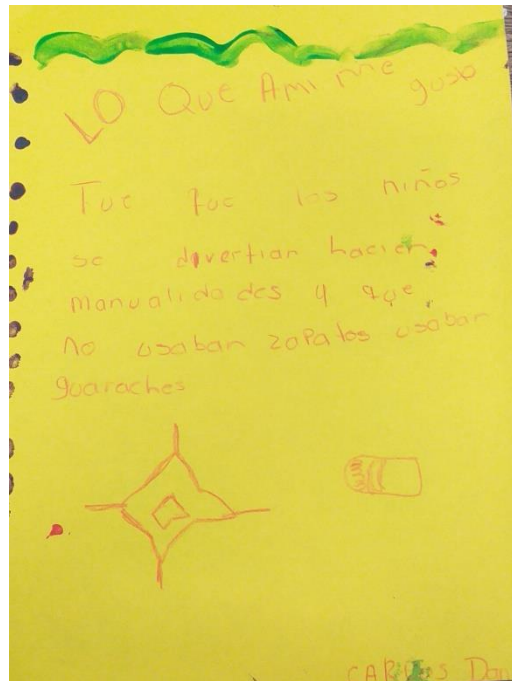 LO QUE AMI me gusto
Fue que los niños
se divertian hacien
manualidades y que
no usaban zapatos usaban
guaraches
CARLOS Dan